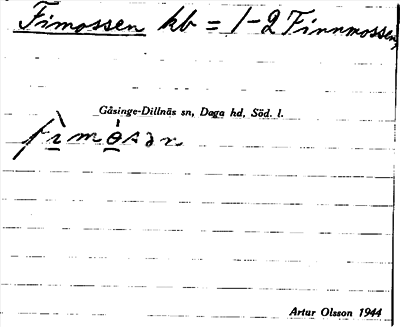 Fimossen kb = 1-2 Finnmossen,
Gåsinge-Dillnäs sn, Daga hd, Söd. l.
fìmòsən
Artur Olsson 1944